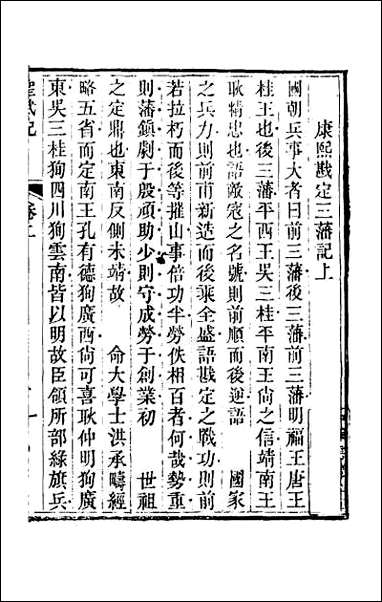 康熙戡定三藩記上
國朝兵事大者曰前三藩後三藩前三藩明福王唐王
桂王也後三藩平西王吳三桂平南王尙之信靖南王
耿精忠也語敵寇之名號則前順而後逆語 國家
之兵力則前甫新造而後乘全盛語戡定之戰功則前
若拉朽而後等摧山事倍功半勞佚相百者何哉勢重
則藩鎮劇于殷頑助少則守成勞于創業初 世祖
之定鼎也東南反側未靖故 命大學士洪承疇經
略五省而定南王孔有德狥廣西尙可喜耿仲明狥廣
東吳三桂狥四川狥雲南皆以明故臣領所部綠旗兵
聖武記